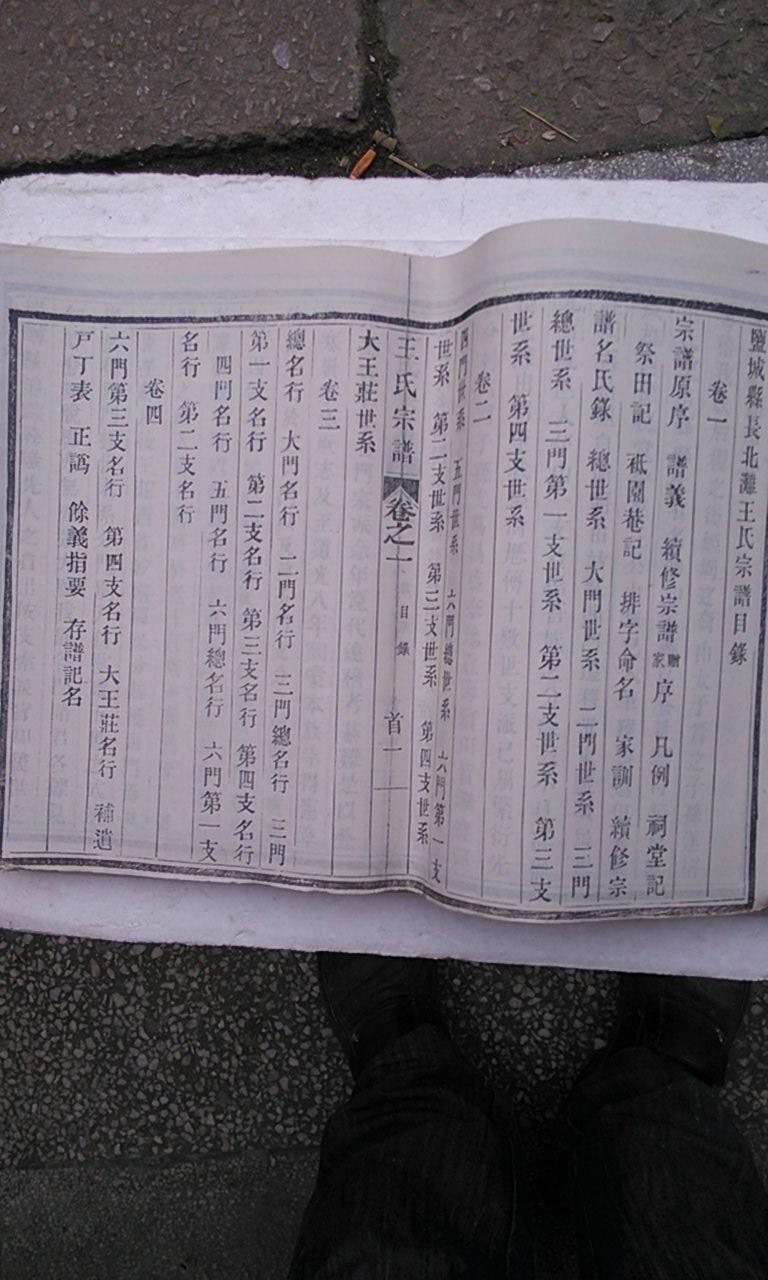 鹽城縣長北灘王氏宗譜目錄
卷一
宗譜原序 譜義 續修宗譜贈家序 凡例 祠堂記
祭田記 祗園巷記 排字命名 家訓 續修宗
譜名氏錄 總世系 大門世系 二門世系 三門
總世系 三門第一支世系 第二支世系 第三支
世系 第四支世系
卷二
四門世系 五門世系 六門總世系 六門第一支
世系 第二支世系 第三支世系 第四支世系
王氏宗譜 卷之一 目錄 首一
大王莊世系
卷三
總名行 大門名行 二門名行 三門總名行 三門
第一支名行 第二支名行 第三支名行 第四支名行
四門名行 五門名行 六門總名行 六門第一支
名行 第二支名行
卷四
六門第三支名行 第四支名行 大王莊名行 補遺
戸丁表 正譌 餘義指要 存譜記名